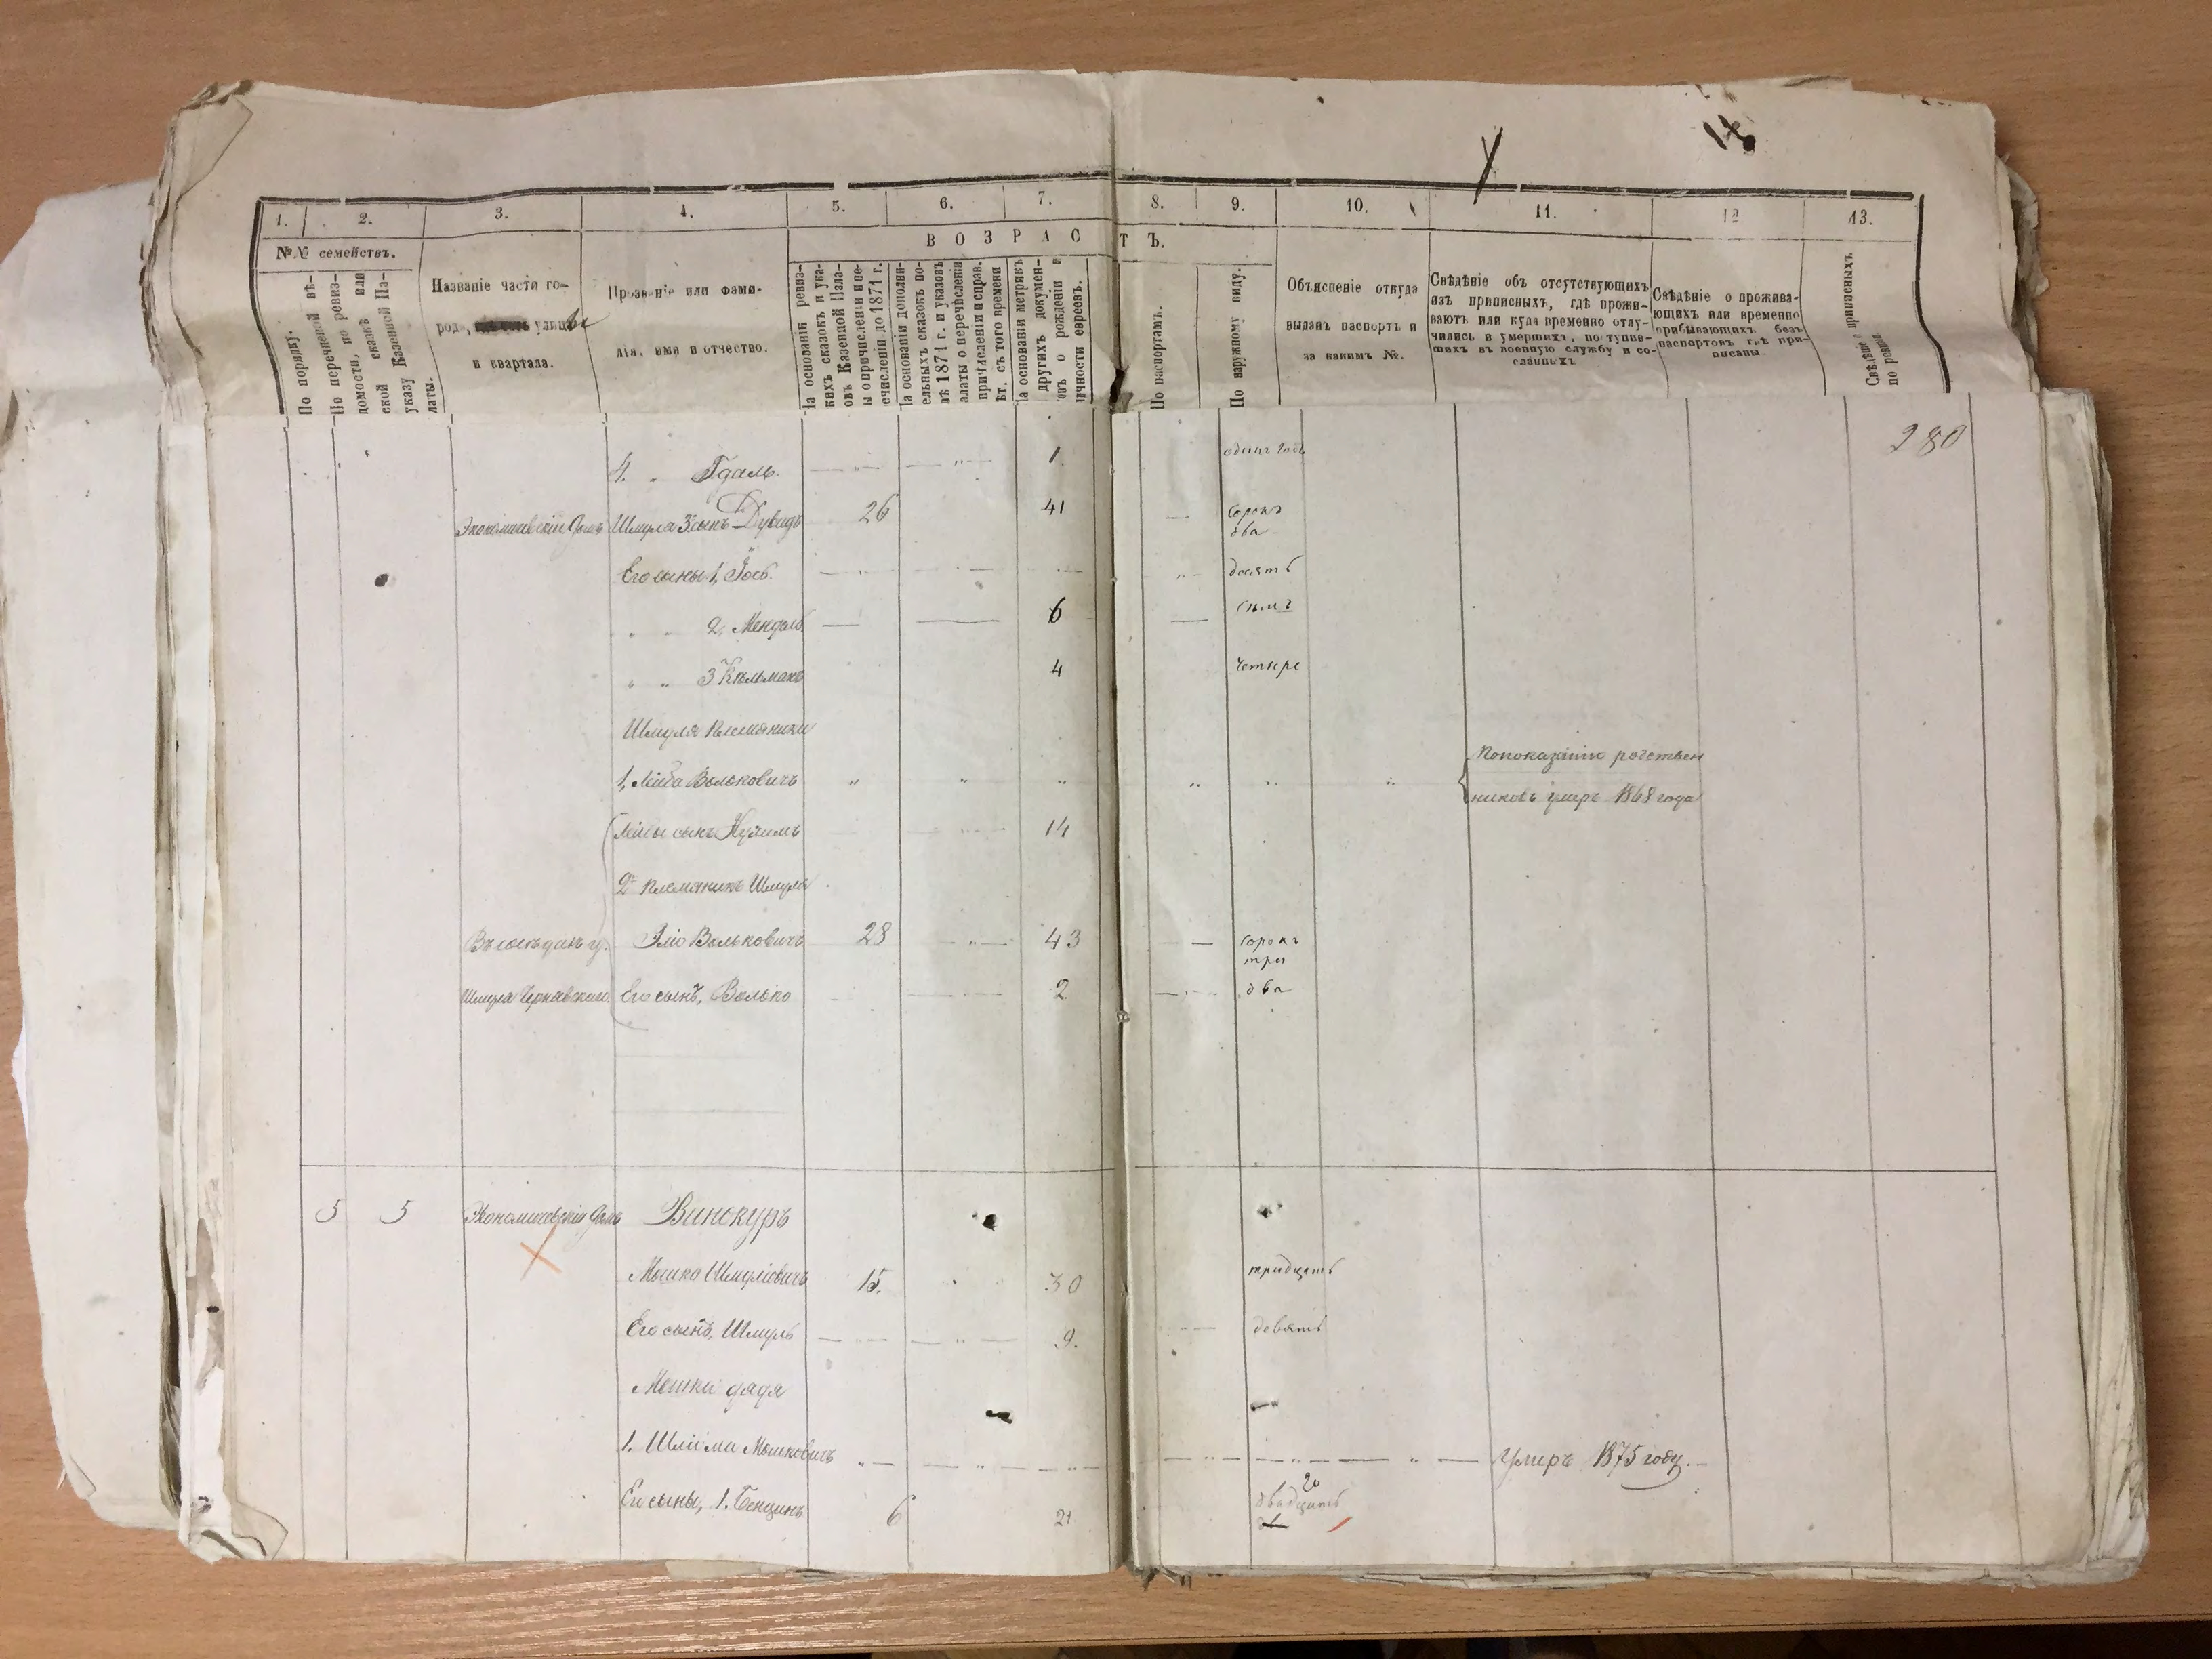 1.
2.
3.
4.
5.
6.
7.
8.
9.
10.
11.
12
13.
№№ семействъ.
В О З Р А С Т Ъ.
По порядку.
По перечневой вѣ-
домости, или
по ревиз-
ской сказкѣ или
указу Казенной Па-
латы.
Названіе части го-
рода, улицы
и квартала.
Прозваніе или фами-
лія, имя и отчество.
На основаніи ревиз-
кихъ сказокъ и ука-
овъ Казенной Пала-
ы о причисленіи и пе-
ечисленіи до 1871 г.
На основаніи дополни-
ельныхъ сказокъ по-
лѣ 1871 г. и указовъ
алаты о перечисленіи
причисленіи и справ.
ѣт. съ того времени
а основаніи метрикъ
другихъ докумен-
овъ о рожденіи и
ичности евреевъ.
По паспортамъ.
По наружному виду.
Объясненіе откуда
выданъ паспортъ и
за какимъ №.
Свѣдѣніе объ отсутствующихъ
изъ приписныхъ, гдѣ прожи-
ваютъ или куда временно отлу-
чились и умершихъ, поступив-
шихъ въ военную службу и со-
сланныхъ
Свѣдѣніе о прожива-
ющихъ или временно
прибывающихъ безъ
паспортовъ гдѣ при-
писаны.
Свѣдѣніе о приписныхъ
по ревиз.
280
4. " Гдаль. 1 одинъ годъ
Шмуля 3й сынъ Дувидъ 26 41 сорокъ
два
Его сыны 1, Іосъ. десять
" " 2, Мендель 6 семъ
" " 3 Кельманъ 4 четыре
Шмуля племяники
1, Лейба Вольковичъ
Попоказанію родствен
никовъ умеръ 1868 года
Лейбы сынъ Нухимъ 14
2й племяникъ Шмуля
Эліо Вольковичъ 28 43 сорокъ
три
Шмуля Чернявскаго. Его сынъ, Волько 2 два
5 5 Винокуръ
Мошко Шмуліовичъ 15. 30 тридцать
Его сынъ, Шмуль 9. девять
Мошки дядя
1. Шліома Мошковичъ Умеръ 1875 году.
20
Его сыны, 1. Бенционъ 6 21 двадцать